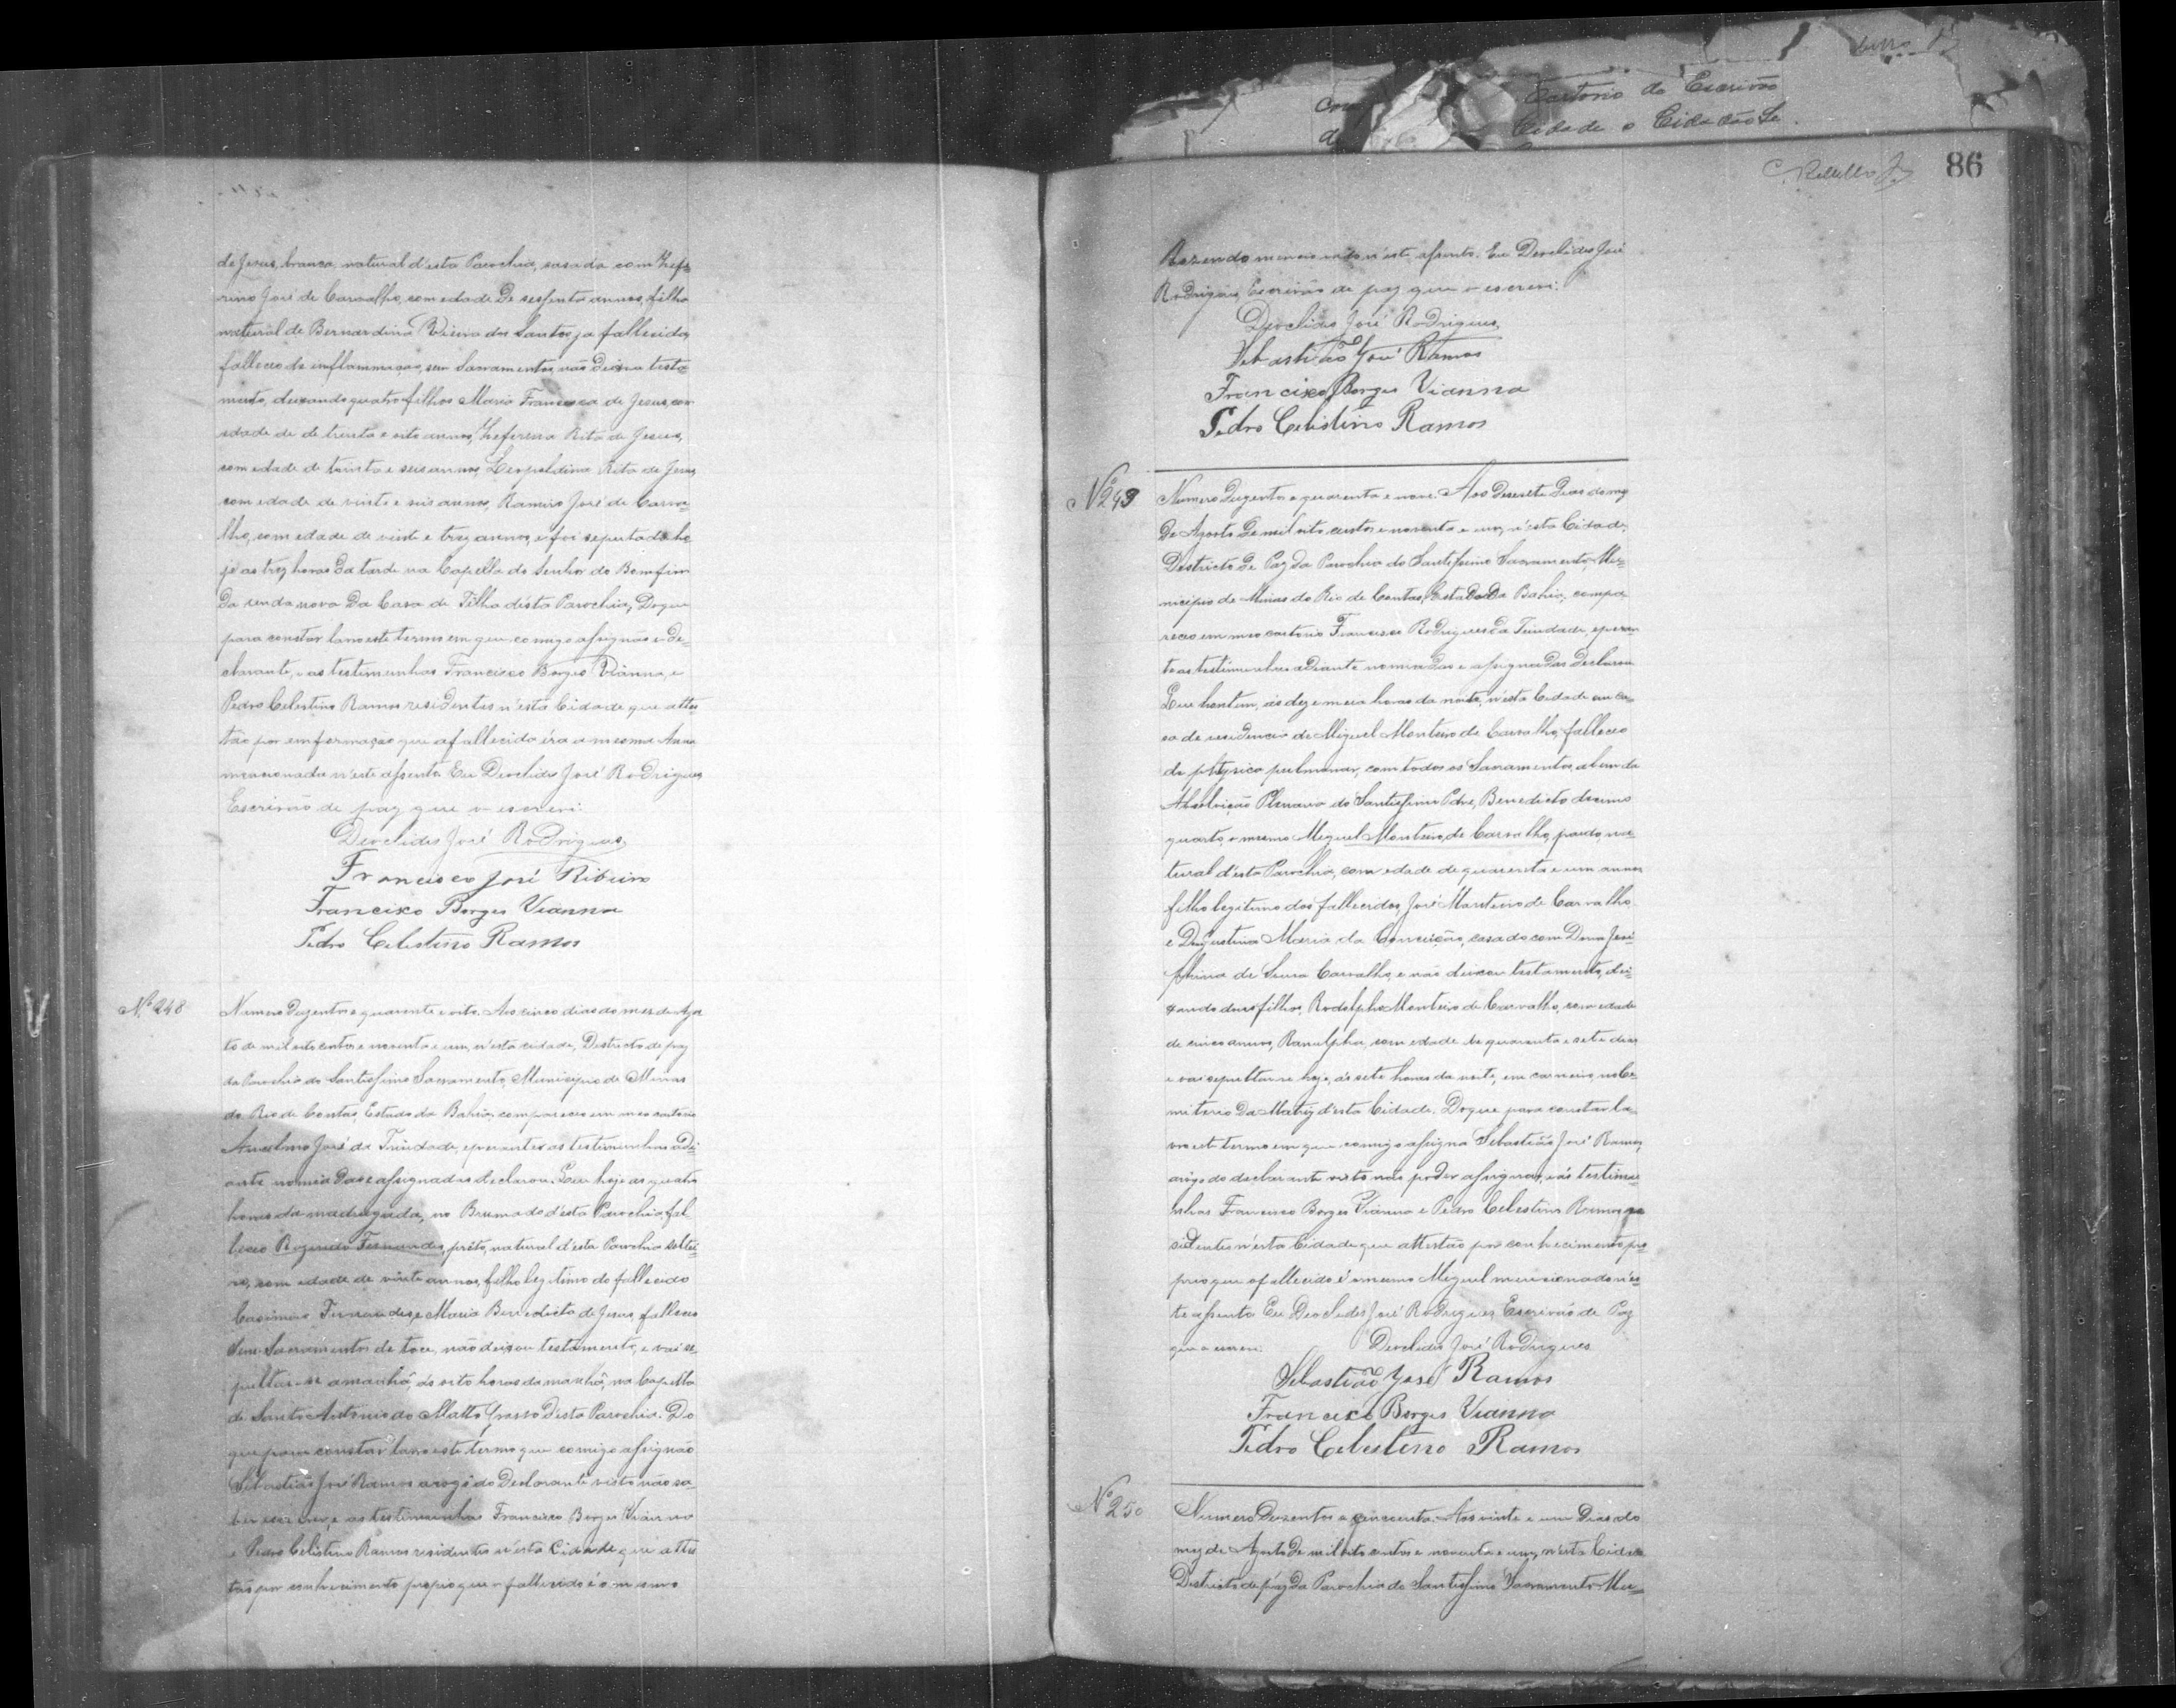 Cartorio do Escrivão
Cidade o Cidadão
86
de Jesus, branca, natural d'esta Parochia, casada com Zefe-
rino José de Carvalho, com edade de sessenta annos, filha
natural de Bernardina Vieira dos Santos, ja fallecida,
falleceo de inflammação, sem Sacramentos, não deixou testa-
mento, deixando quatro filhos Maria Francisca de Jesus, com
edade de de trinta e oito annos, Zeferina Rita de Jesus,
com edade de trinta e seis annos, Leopoldina Rita de Jesus,
com edade de vinte e seis annos, Ramiro José de Carva-
lho, com edade de vinte e trez annos, e foi sepultada ho
je as trez horas da tarde na Capella do Senhor do Bomfim
da venda nova da Casa de Telha d'esta Parochia, Do que
para constar lavro este termo em que comigo assignão o de-
clarante, e as testimunhas Francisco Borges Vianna, e
Pedro Celestino Ramos residentes n'esta Cidade que attes-
tão por emformação que a fallecida éra a mesma Anna
mencionada n'este assento. Eu Deoclides José Rodrigues
Escrivão de paz que o escrevi:
Deoclides José Rodrigues
Francisco José Ribeiro
Francisco Borges Vianna
Pedro Celestino Ramos
Nº 248
Numero Duzentos e quarenta e oito. Aos cinco dias do mes de Agos
to de mil oito centos e noventa e um, n'esta cidade, Destricto de paz
da Parochia do Santissimo Sacramento, Municipio de Minas
do Rio de Contas, Estado da Bahia, compareceo em meo cartorio
Anselmo José da Trindade, e perante as testimunhas adi-
ante nomiadas e assignadas declarou. Que hoje as quatro
horas da madrugada, no Brumado d'esta Parochia, fal
leceo Rozendo Fernandes, prêto, natural d'esta Parochia soltei-
ro, com edade de vinte annos, filho legitimo do fallecido
Casimiro Fernandes, e Maria Benedicta de Jesus, falleceo
sem Sacramentos de toce, não deixou testamento, e vai se-
pultar-se amanhã, ás oito horas da manhã, na Capella
de Santo Antonio do Matto Grosso desta Parochia. Do
que para constar lavro este termo que comigo assignão
Sebastião José Ramos a rogo do Declarante visto não sa-
ber escrever, e as testimunhas Francisco Borges Vianna
e Pedro Celestino Ramos residentes n'esta Cidade que attes
tão por conhecimento proprio que o fallecido é o mesmo
Rozendo mencionado n'este assento. Eu Deoclides José
Rodrigues, Escrivão de paz que o escrevi:
Deoclides José Rodrigues
Sebastião José Ramos
Francisco Borges Vianna
Pedro Celestino Ramos
Nº 249
Numero Duzentos e quarenta e nove. Aos Desesete Dias do mez
De Agosto de mil oito centos e noventa e um, n'esta Cidade,
Destricto de Paz da Parochia do Santissimo Sacramento, Mu-
nicipio de Minas do Rio de Contas, Estado da Bahia, compa-
receo em meo cartorio Francisco Rodrigues da Trindade, e peran-
te as testimunhas adiante nomeadas e assignadas Declarou
Que hontem, ás dez e meia horas da noite, n'esta Cidade em ca-
sa de residencia de Miguel Monteiro de Carvalho, falleceo
de phtysica pulmonar, com todos os Sacramentos, alem da
Absolvição Plenaria do Santissimo Padre, Benedicto decimo
quarto, o mesmo Miguel Monteiro de Carvalho, pardo, na-
tural d'esta Parochia, com edade de quarenta e um annos
filho legitimo dos fallecidos, José Monteiro de Carvalho
e Maria da Conceição, casado com Dona Jose-
phina de Carvalho, e não deixou testamento, dei-
xando dous filhos, Rodolpho Monteiro de Carvalho, com edade
de cinco annos, Ranulpho, com edade de quarenta e sete dias
e vai sepultar-se hoje, ás sete horas da noite, em carneiro, no Ce-
miterio da Matriz d'esta Cidade. Do que para constar la-
vro este termo em que comigo assigna Sebastião José Ramos,
a rogo do declarante visto não poder assignar, e ás testimu-
nhas Francisco Borges Vianna e Pedro Celestino Ramos re
sidentes n'esta Cidade que attestão por conhecimento pro-
prio que o fallecido é o mesmo Miguel mencionado n'es-
te assento. Eu Deoclides José Rodrigues Escrivão de Paz
que o escrevi: Deoclides José Rodrigues
Sebastião José Ramos
Francisco Borges Vianna
Pedro Celestino Ramos
Nº 250
Numero Duzentos e cincoenta. Aos vinte e um Dias do
mez de Agosto de mil oito centos e noventa e um, n'esta Cidade
Districto de paz da Parochia do Santissimo Sacramento Mu-